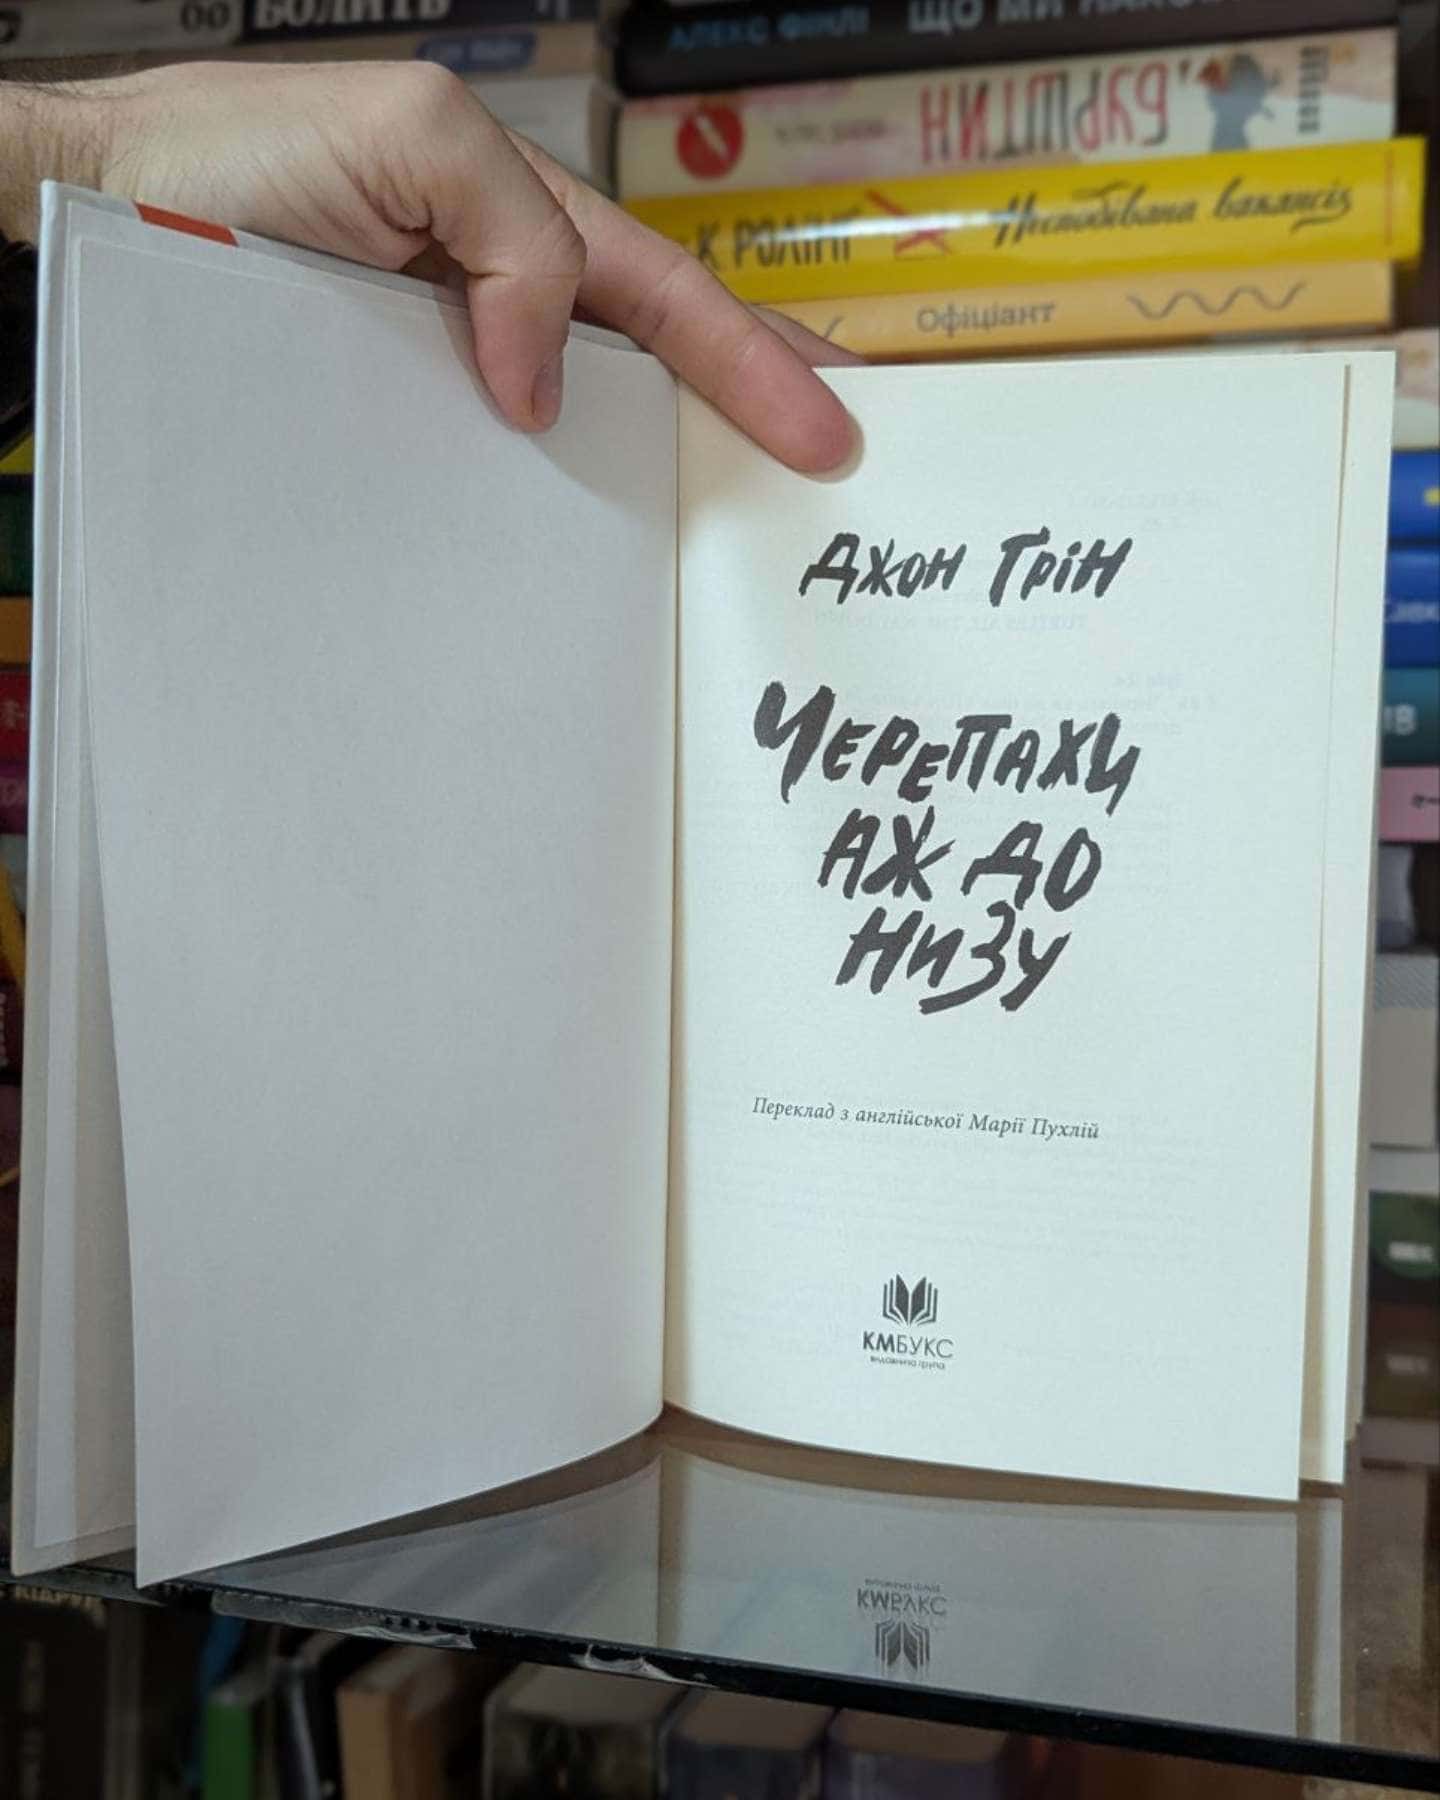 БОЛИТЬ
АЛЕКС ФІНЛІ ЩО МИ
БУРШТИН
К РОЛІНГ Несподівана вакансія
Офіціант
ДЖОН ҐРІН
ЧЕРЕПАХИ
АЖ ДО
НИЗУ
Переклад з англійської Марії Пухлій
КМБУКС
видавнича група